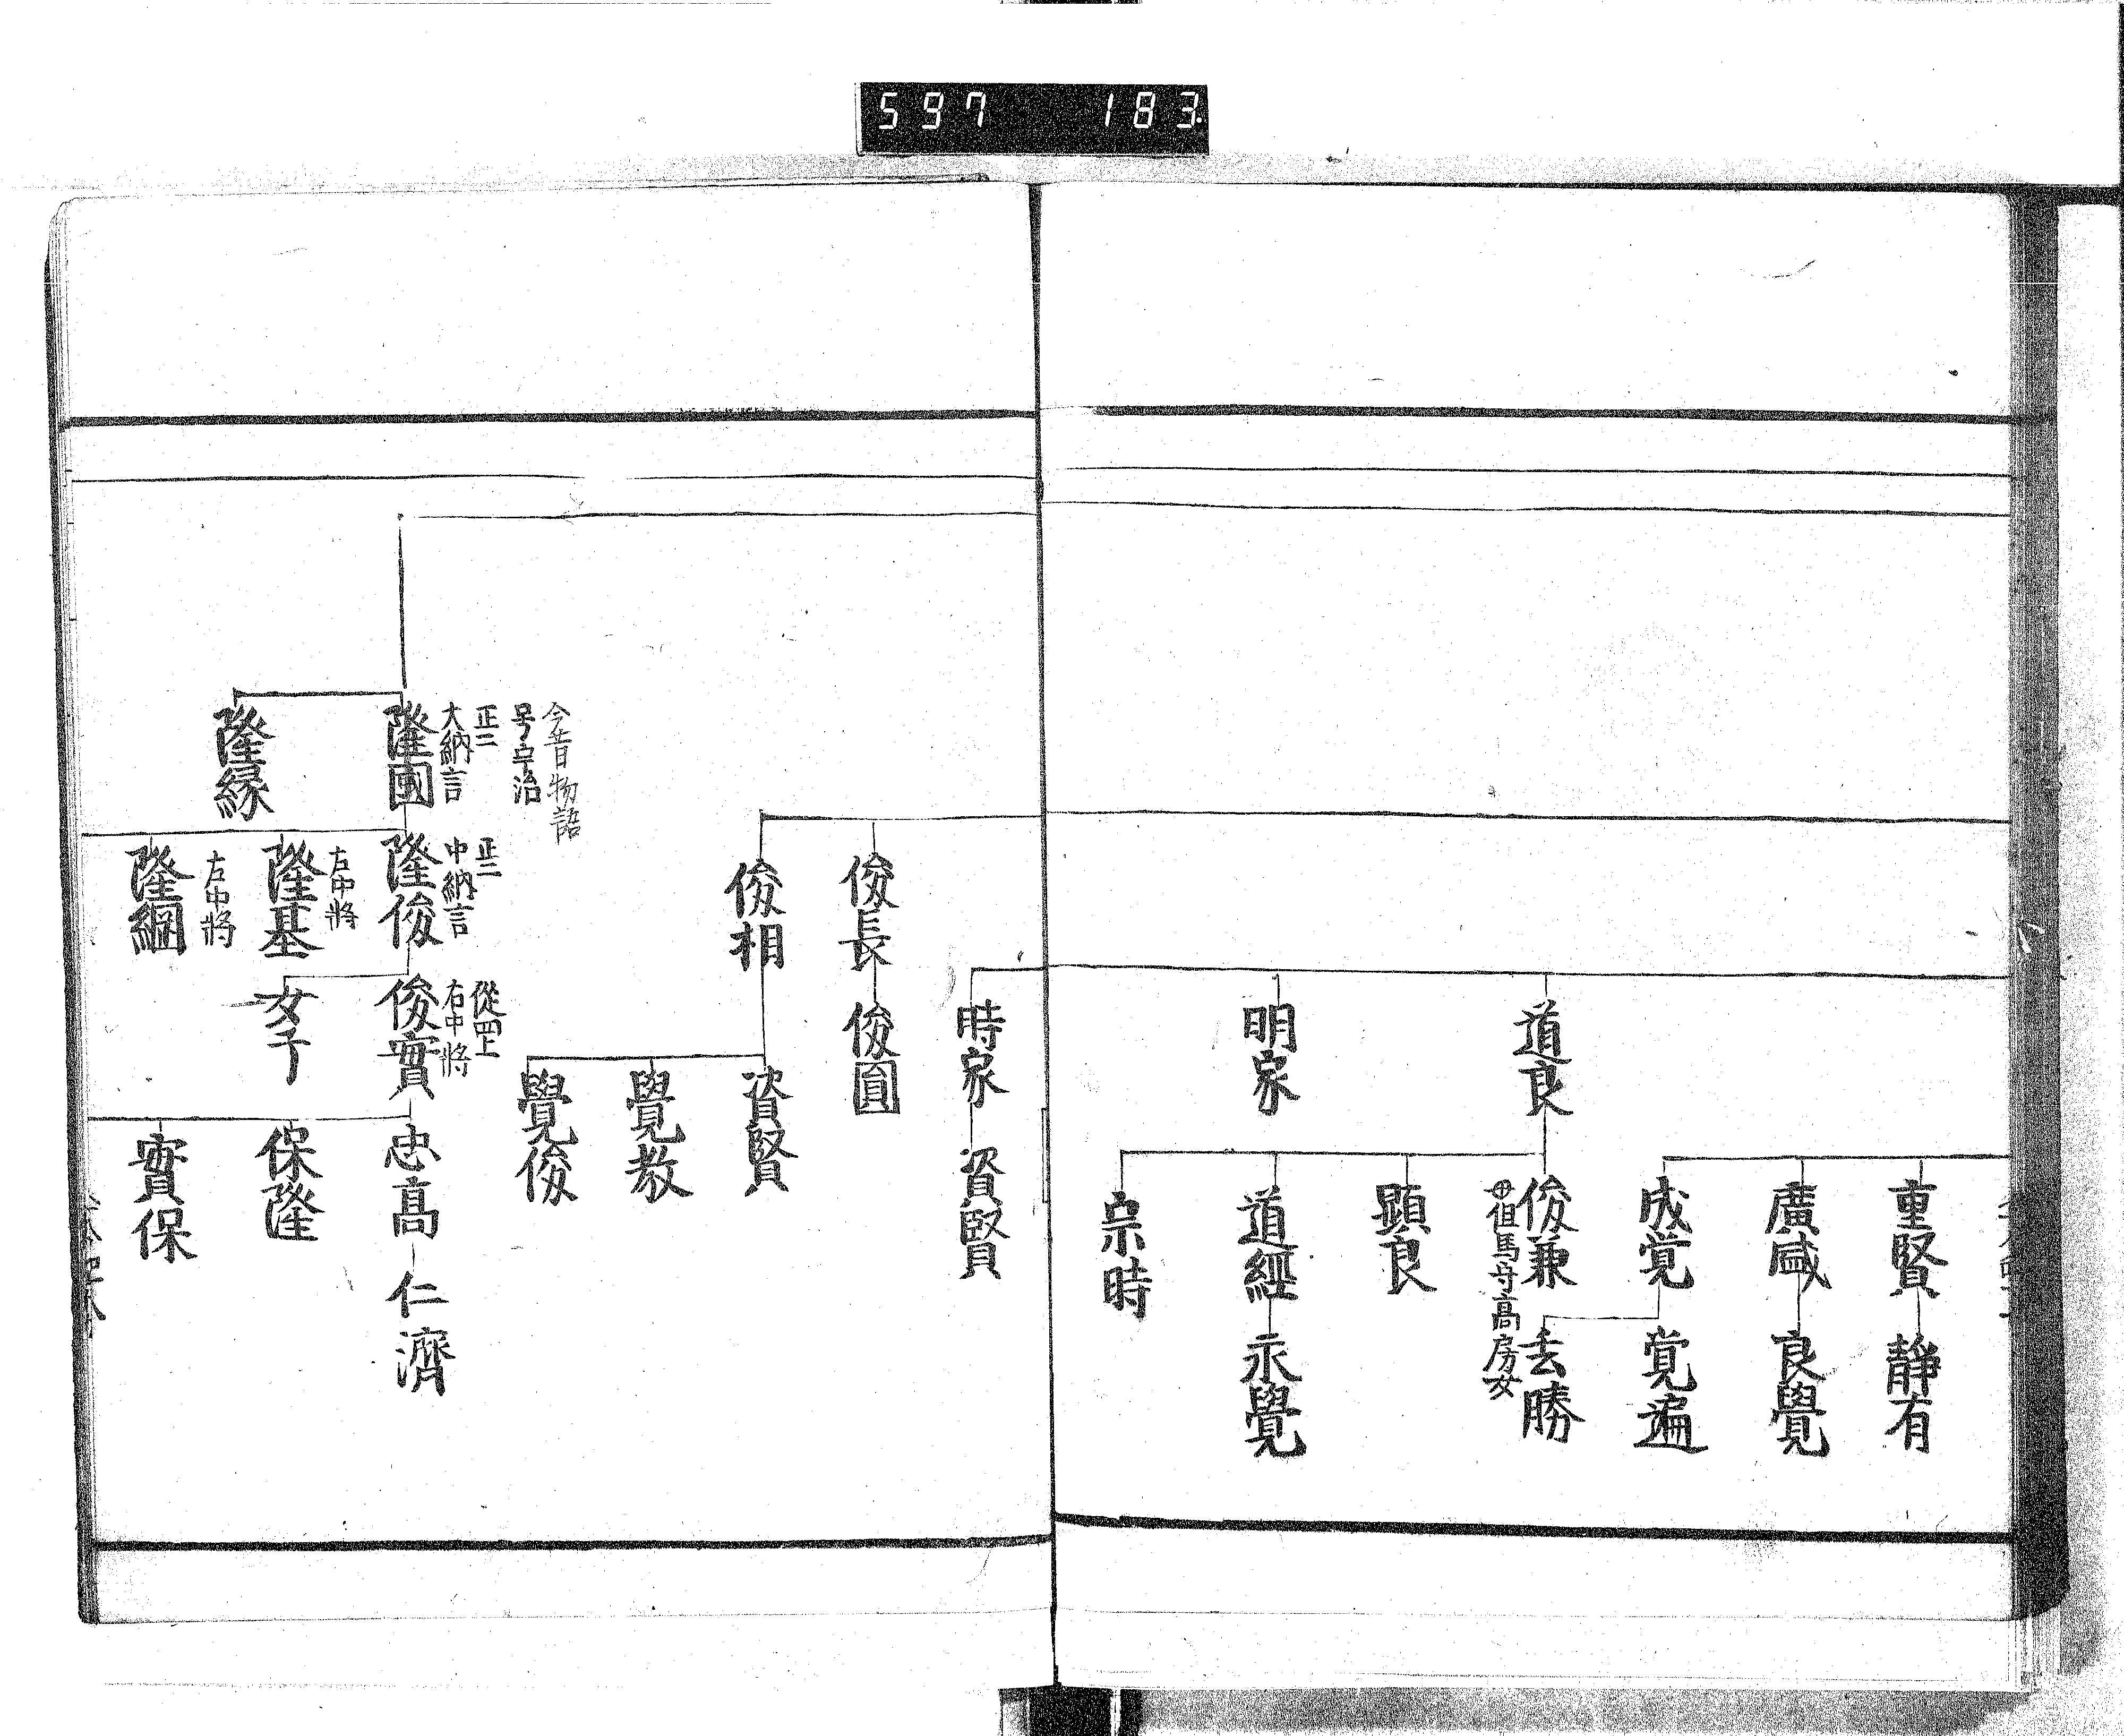 597 183
重賢
静有
廣咸
良覺
成覚
覚遍
道良
俊兼
玄勝
母但馬守高房女
顕良
明家
道經
永覺
宗時
時家
資賢
俊長
俊圓
俊相
資賢
覺教
覺俊
今昔物語
号宇治
正二
大納言
隆國
正二
中納言
隆俊
從四上
右中將
俊實
忠高
仁濟
隆縁
左中將
隆基
女子
保隆
左中將
隆綱
實保